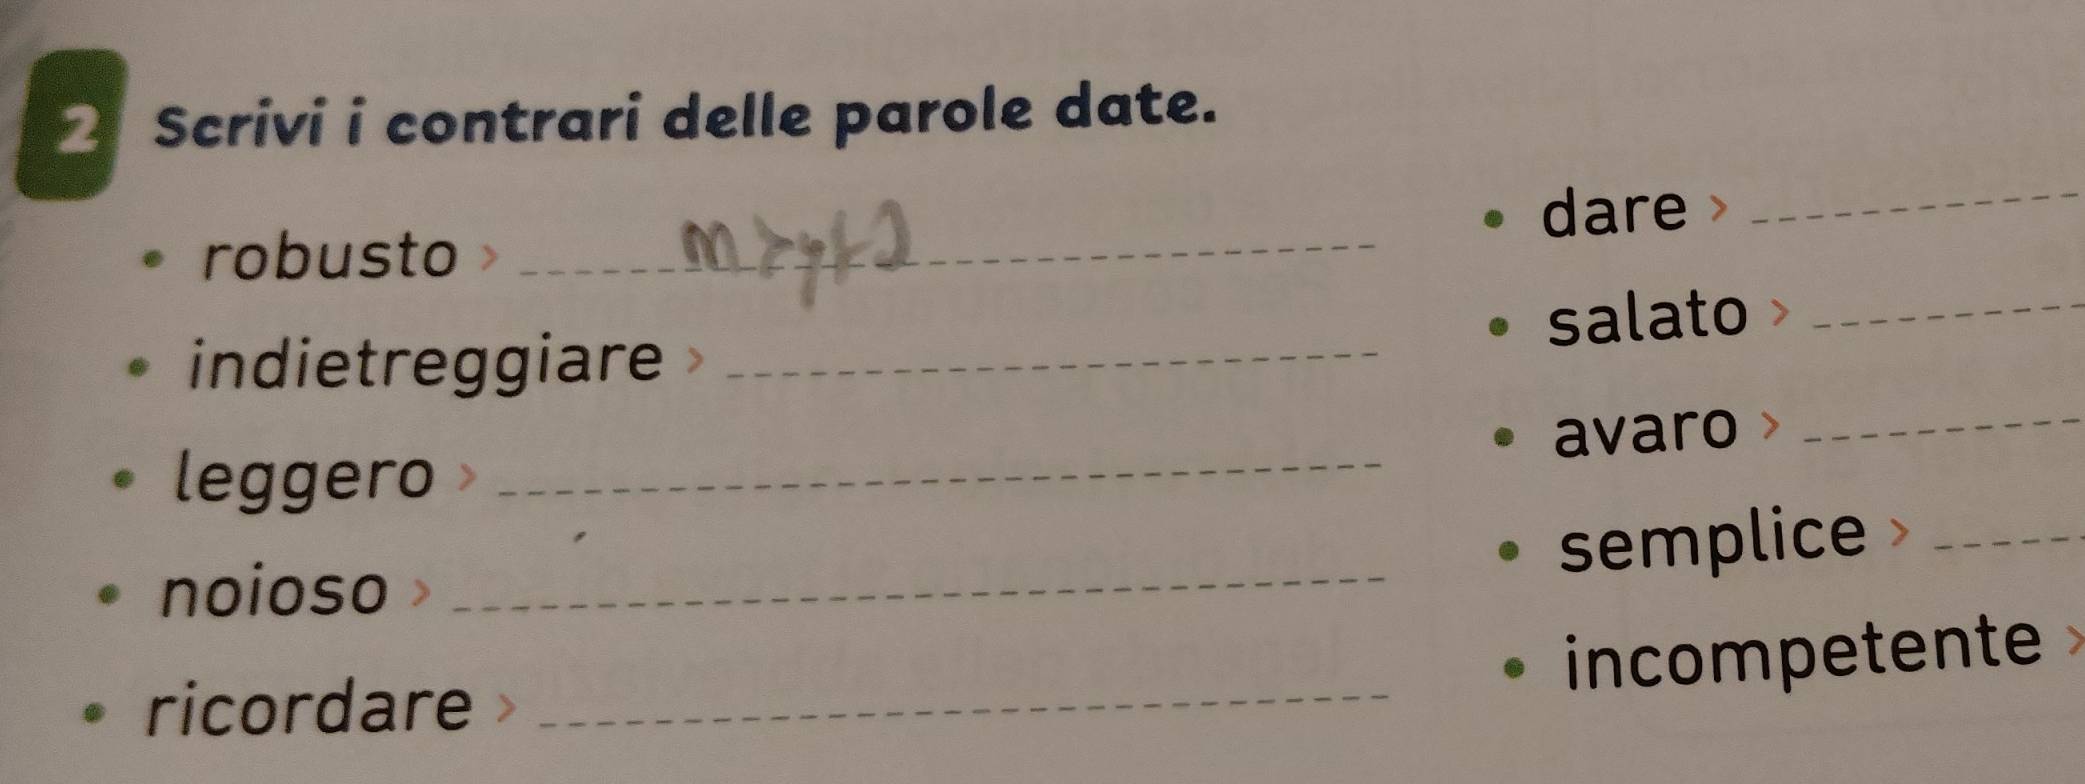 2 Scrivi i contrari delle parole date.
• robusto >
• indietreggiare >
• leggero >
• noioso >
• ricordare >
• dare >
• salato >
• avaro >
• semplice >
• incompetente >